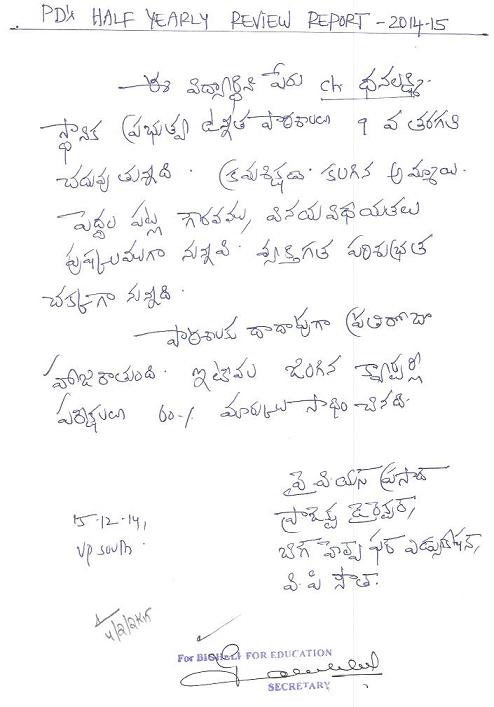 PD's HALF YEARLY REVIEW REPORT - 2014-15
ఈ విద్యార్థిని పేరు Ch ధనలక్ష్మి.
స్థానిక ప్రభుత్వ ఉన్నత పాఠశాలలు 9 వ తరగతి
చదువు తున్నది. క్రమశిక్షణ కలిగిన అమ్మాయి.
పెద్దల పట్ల గౌరవము, వినయవిధేయతలు
పుష్కలముగా నున్నవి. వ్యక్తిగత పరిశుభ్రత
చక్కగా నున్నది.
పాఠశాలకు దాదాపుగా ప్రతిరోజూ
హాజరౌతుంది. ఇటీవల జరిగిన క్వార్టర్లీ
పరీక్షలలు 60% మార్కులు సాధించినది.
వై.వి.యస్ ప్రసాద్
15-12-14, ప్రాజెక్టు డైరెక్టర్,
VP south. బిగ్ హెల్ప్ ఫర్ ఎడ్యుకేషన్,
వి.పి సౌత్.
For BIGHELP FOR EDUCATION
SECRETARY